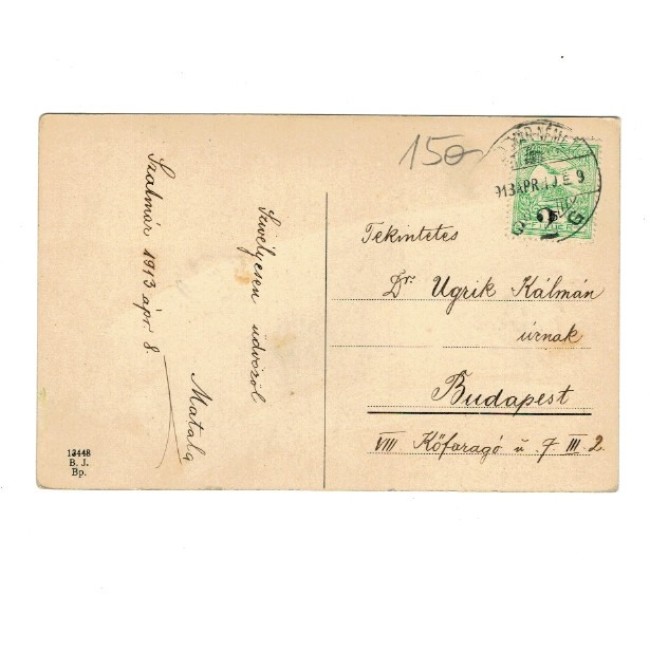 Szatmár 1913 ápr. 8.
Szivélyesen üdvözöl
Matala
13448
B. J.
Bp.
150
913 APR
9
2
Tekintetes
Dr. Ugrik Kálmán
úrnak
Budapest
VIII Kőfaragó u. 7. III. 2.